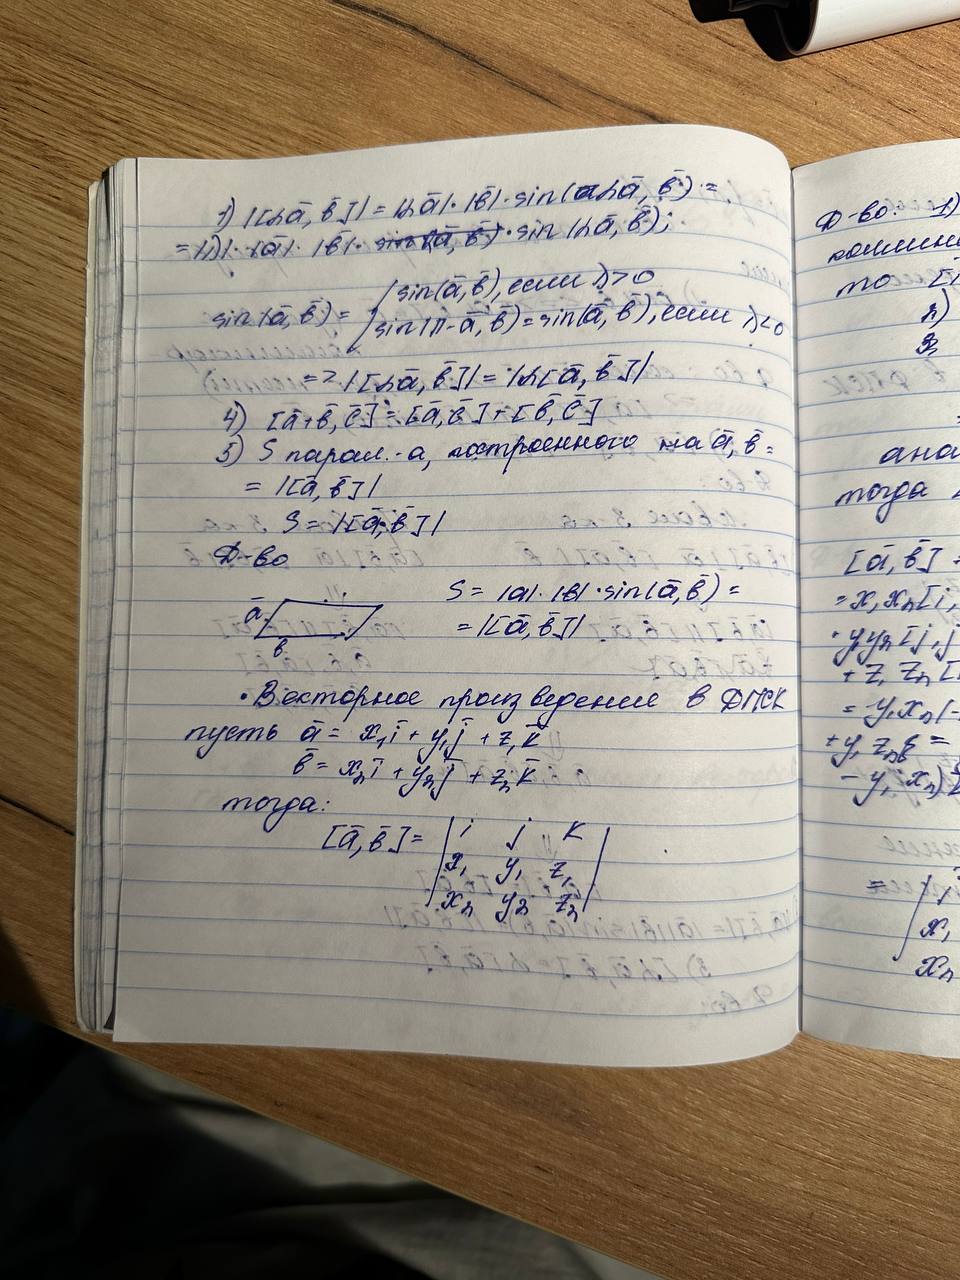 1) |[λā, b̄]| = |λā|·|b̄|·sin(λā, b̄) =
= |λ|·|ā|·|b̄|·sin(λā, b̄);
sin(ā, b̄) = { sin(ā, b̄), если λ>0
sin(π-ā, b̄) = sin(ā, b̄), если λ<0
=> |[λā, b̄]| = |λ[ā, b̄]|
4) [ā+b̄, c̄] = [ā, c̄] + [b̄, c̄]
5) S парал.-а, построенного на ā, b̄ =
= |[ā, b̄]|
S = |[ā, b̄]|
Д-во
ā
b
S = |a|·|b|·sin(ā, b̄) =
= |[ā, b̄]|
• Векторное произведение в ДПСК
пусть ā = x₁i + y₁j + z₁k̄
b̄ = x₂ī + y₂j + z₂k̄
тогда:
[ā, b̄] = | i j k
x₁ y₁ z₁
x₂ y₂ z₂ |
Д-во: 1)
то [i
2)
=
ана
тогда
[ā, b̄] =
= x₁x₂[i,
y₁y₂[j, j
+ z₁z₂[
= y₁x₂(-
+ y₁z₂
- y₁x₂)
=
x₁
x₂